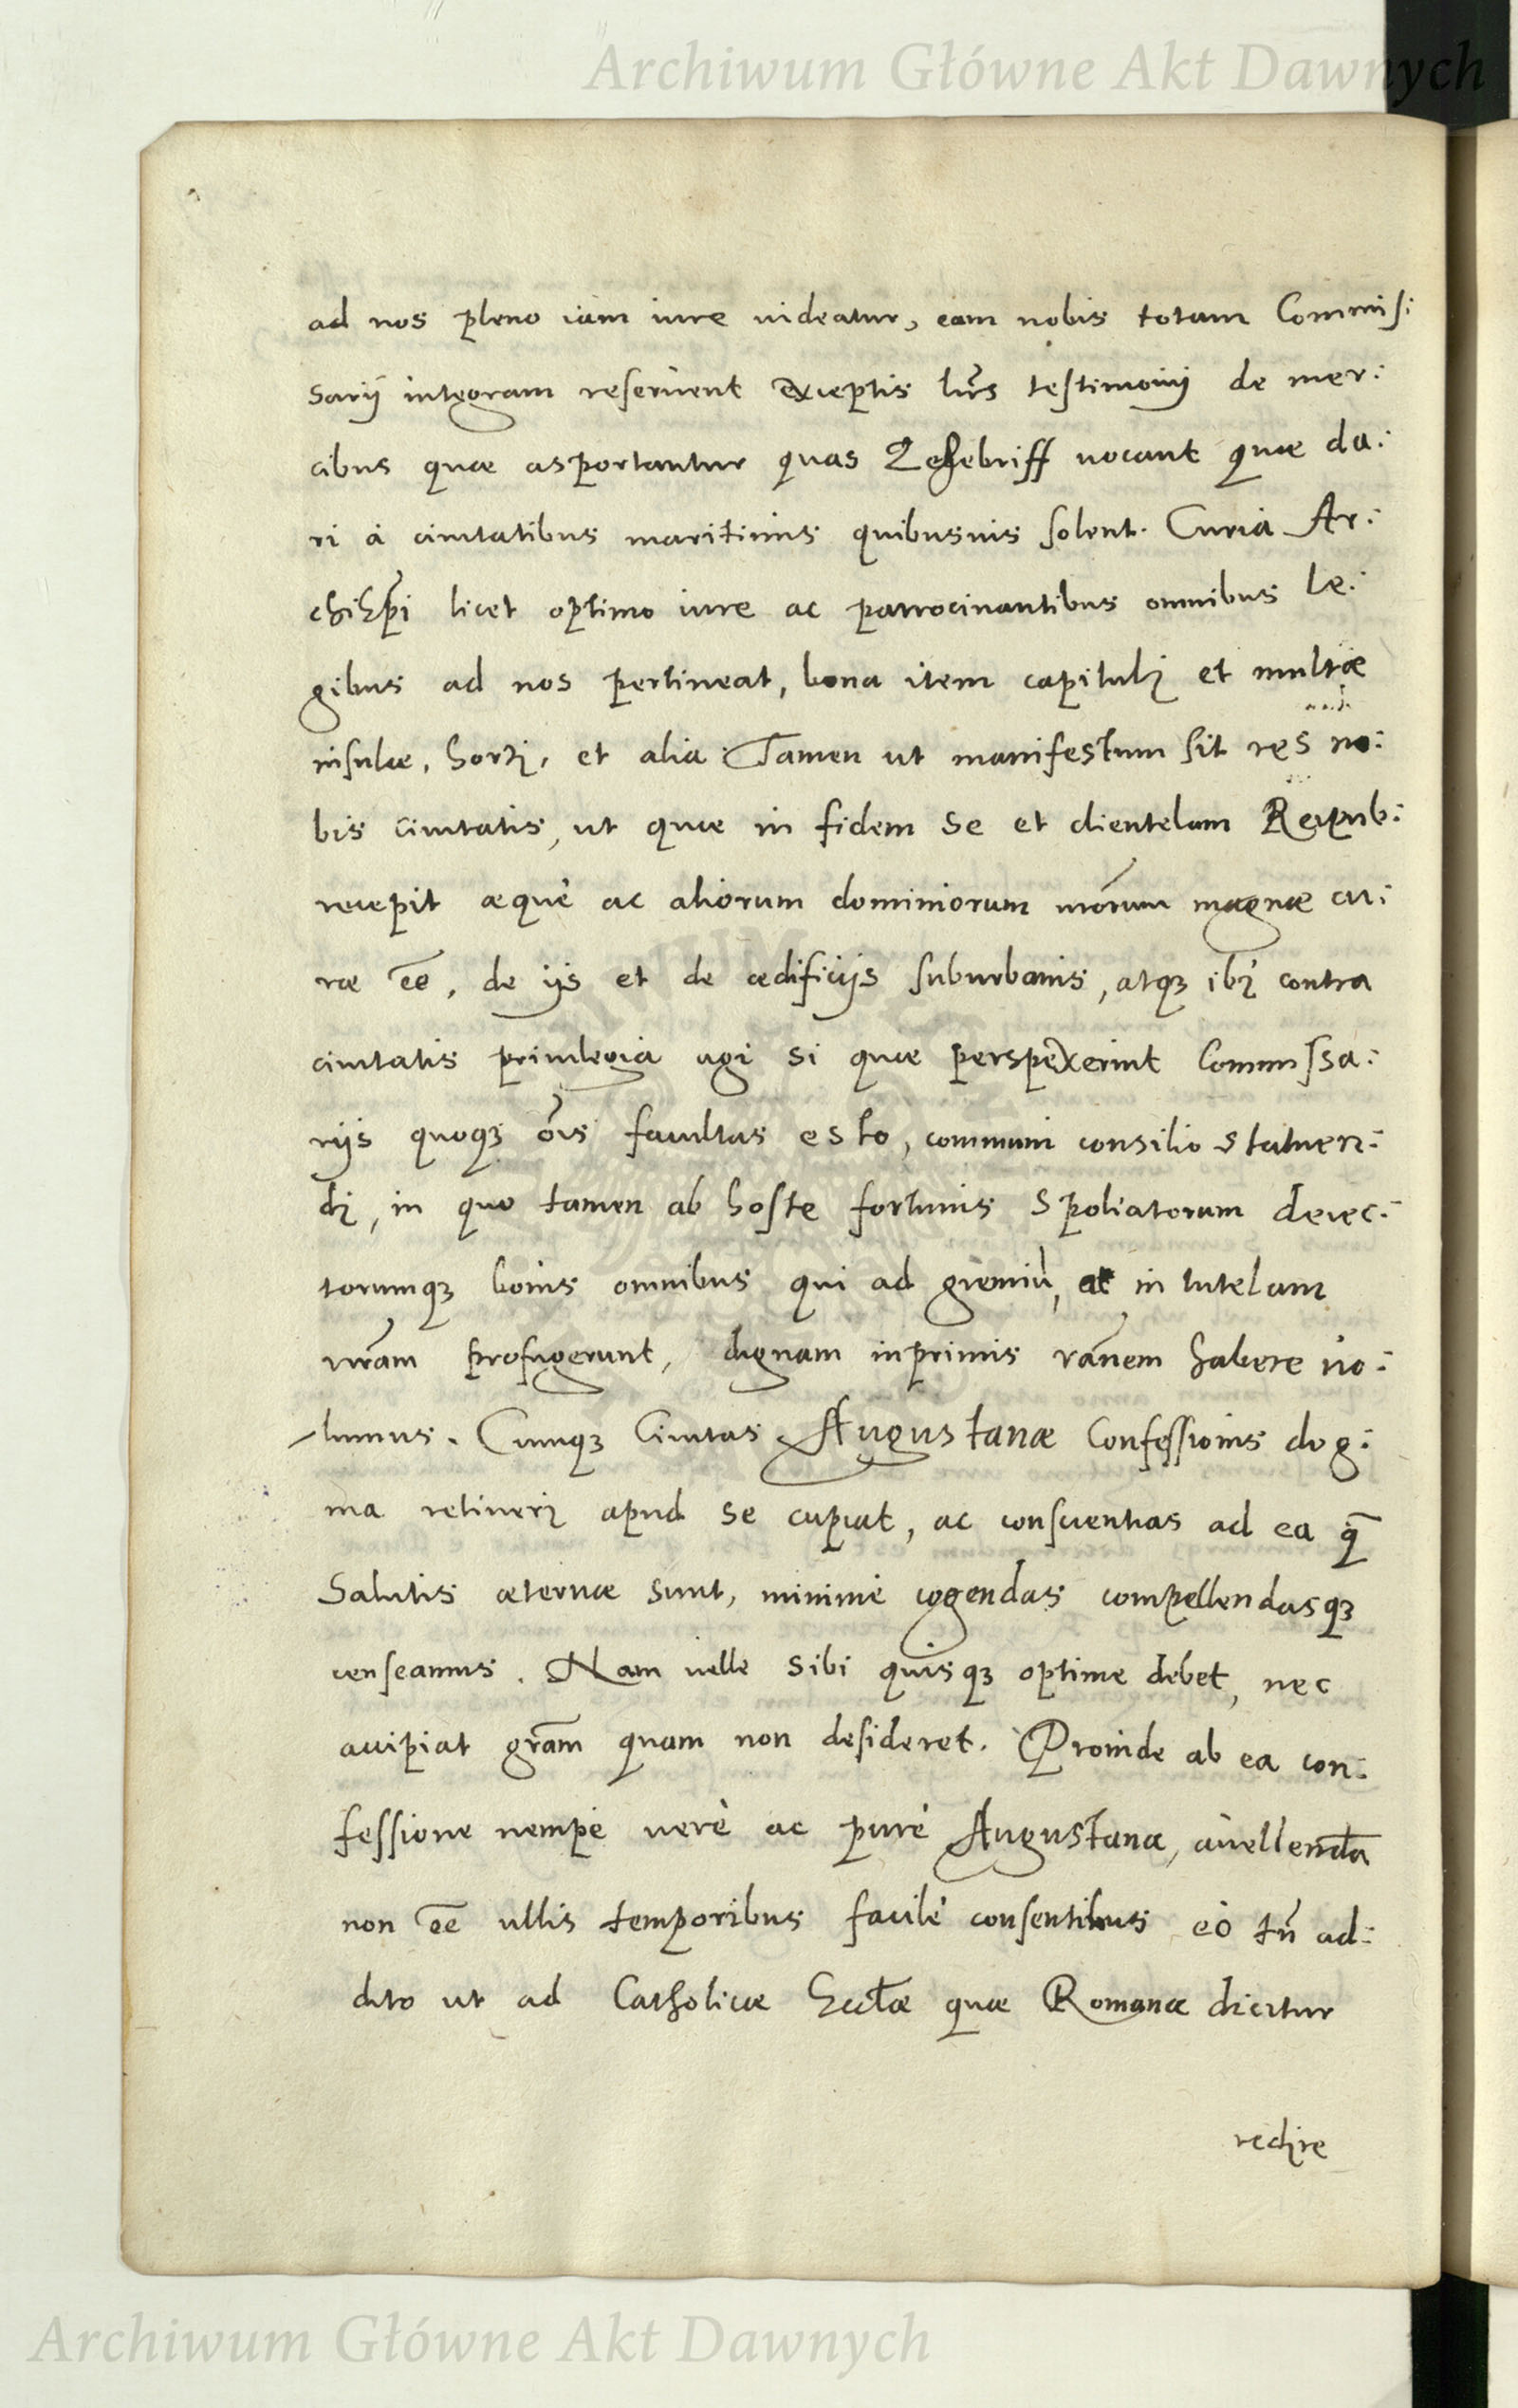 Archiwum Główne Akt Dawnych
ad nos pleno iam iure uideatur, eam nobis totam Commis:
sarij integram reseruent exceptis lr̄is testimonij de mer:
cibus quæ asportantur quas Zehebriff uocant quæ da:
ri à ciuitatibus maritimis quibusuis solent. Curia Ar:
chiEp̄i licet optimo iure ac patrocinantibus omnibus le:
gibus ad nos pertineat, bona item capituli et multæ
insulæ, horti, et alia. Tamen ut manifestum sit res no:
bis ciuitatis, ut quæ in fidem se et clientelam Reipub:
recepit æquè ac aliorum dominiorum nr̄orum magnæ cu:
ræ ēe, de ijs et de ædificijs suburbanis, atqȝ ibi contra
ciuitatis priuilegia agi si quæ perspexerint Commissa:
rijs quoqȝ ōis facultas esto, communi consilio statuen:
di, in quo tamen ab hoste fortunis spoliatorum deiec:
torumqȝ bonis omnibus qui ad gremiū, ac in tutelam
nr̄am profugerunt, dignam inprimis rōnem habere uo:
lumus. Cumqȝ Ciuitas Augustanæ Confessionis dog:
ma retineri apud se cupiat, ac conscientias ad ea q̄
salutis æternæ sunt, minimè cogendas compellendasqȝ
censeamus. Nam uelle sibi quisqȝ optime debet, nec
accipiat gr̄am quam non desideret. Proinde ab ea con:
fessione nempe uerè ac purè Augustana, auellendā
non ēe ullis temporibus facilè consentimus eò tn̄ ad:
dito ut ad Catholicæ Eccl̄æ quæ Romana dicitur
redire
Archiwum Główne Akt Dawnych